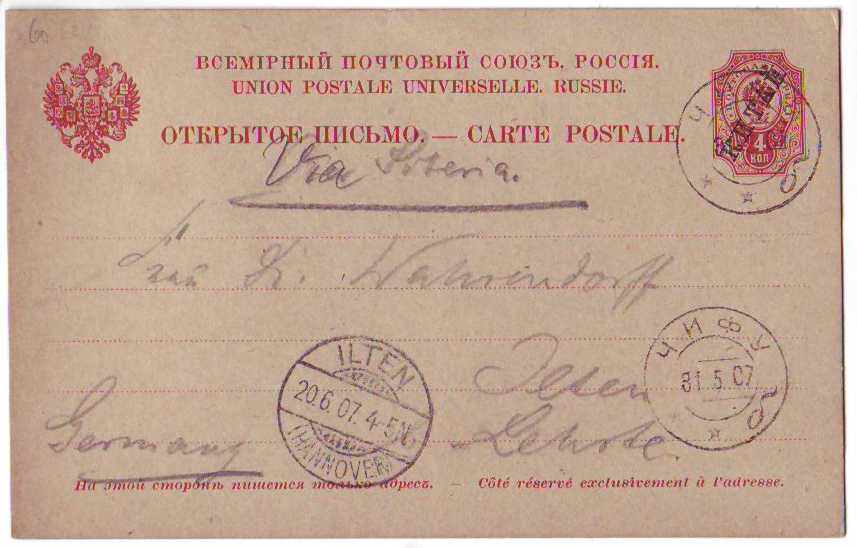 60
ВСЕМІРНЫЙ ПОЧТОВЫЙ СОЮЗЪ. РОССІЯ.
UNION POSTALE UNIVERSELLE. RUSSIE.
ОТКРЫТОЕ ПИСЬМО. — CARTE POSTALE.
КИТАЙ
4
КОП
Via Siberia.
Dr. Wahrendorff
ЧИФУ
31.5.07
ILTEN
20.6.07. 4-5N.
(HANNOVER)
Ilten
Lehrte
Germany
На этой сторонѣ пишется только адресъ. — Côté réservé exclusivement à l'adresse.